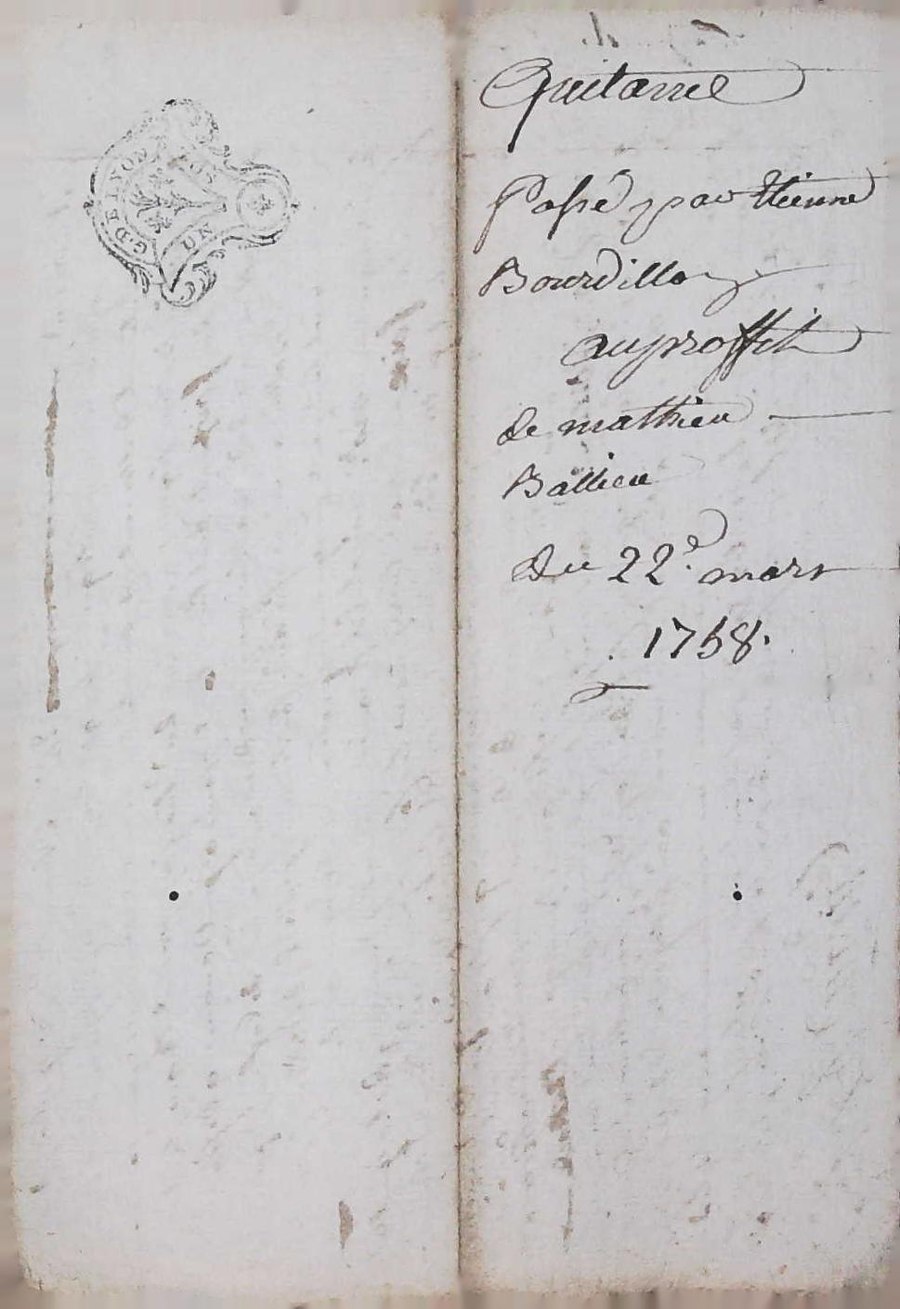 G. DE LYON
UN
Quitance
Passé par Etienne
Bourdillon
au proffit
de mathieu
Ballieu
Du 22.e mars
1758.